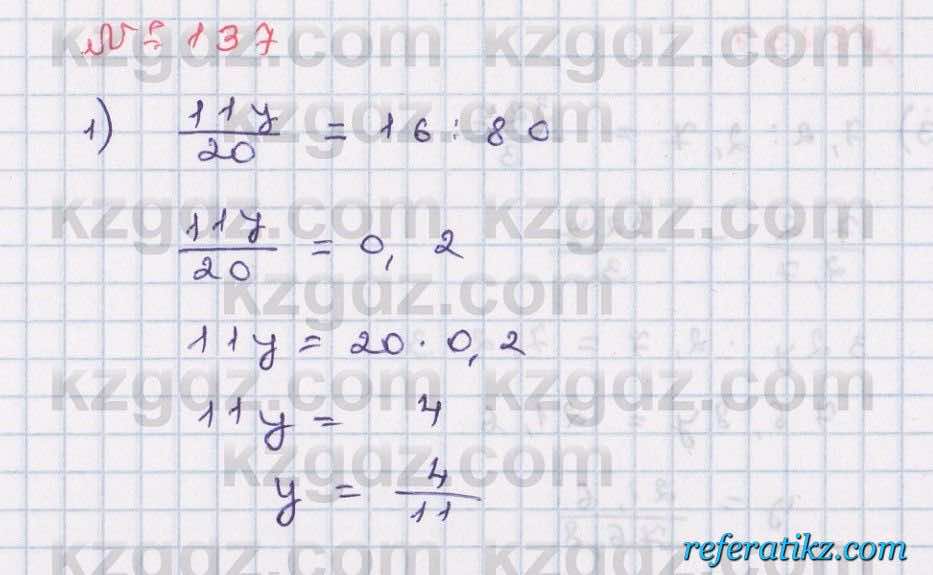 № 5 137
1) 11y/20 = 16 : 80
11y/20 = 0,2
11y = 20 · 0,2
11y = 4
y = 4/11
kzgdz.com
referatikz.com